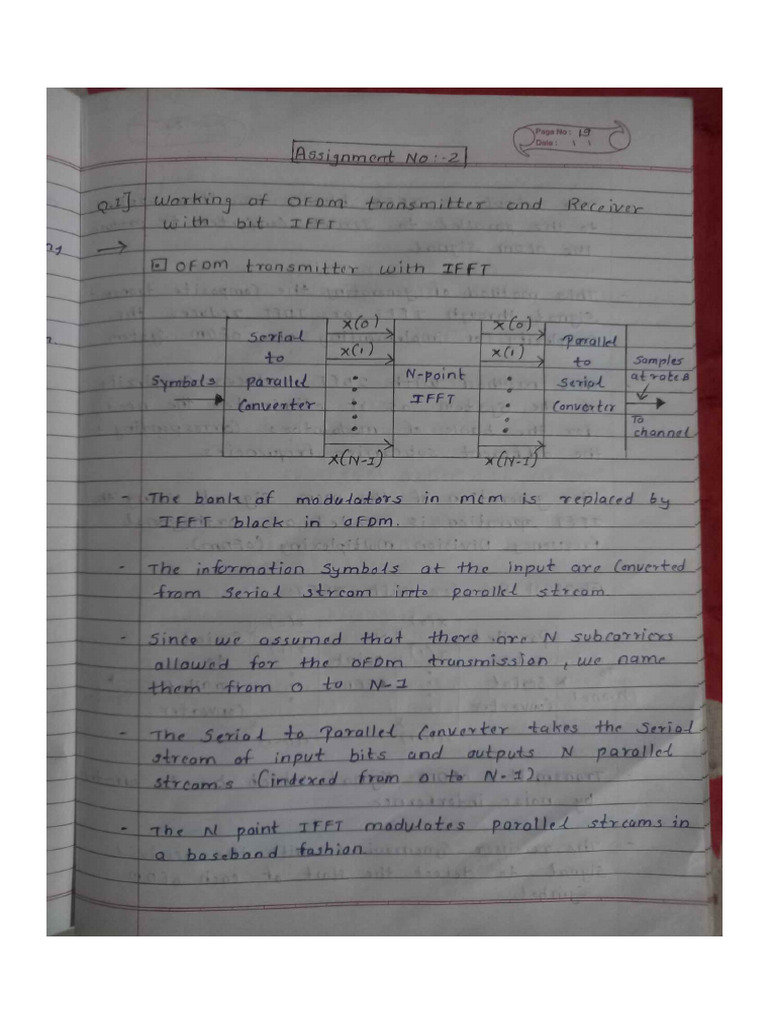 Page No: 19
Date: \ \
Assignment No:-2
Q.1] Working of OFDM transmitter and Receiver
with bit IFFT
→
⊡ OFDM transmitter with IFFT
X(0) X(0)
Serial Parallel
to X(1) X(1) to Samples
Symbols parallel N-point Serial at rate B
Converter IFFT Converter
To
channel
X(N-1) X(N-1)
- The bank of modulators in mcm is replaced by
IFFT block in OFDM.
- The information symbols at the input are converted
from serial stream into parallel stream.
- Since we assumed that there are N subcarriers
allowed for the OFDM transmission, we name
them from 0 to N-1
- The Serial to Parallel Converter takes the serial
stream of input bits and outputs N parallel
stream's (indexed from 0 to N-1).
- The N point IFFT modulates parallel streams in
a baseband fashion.